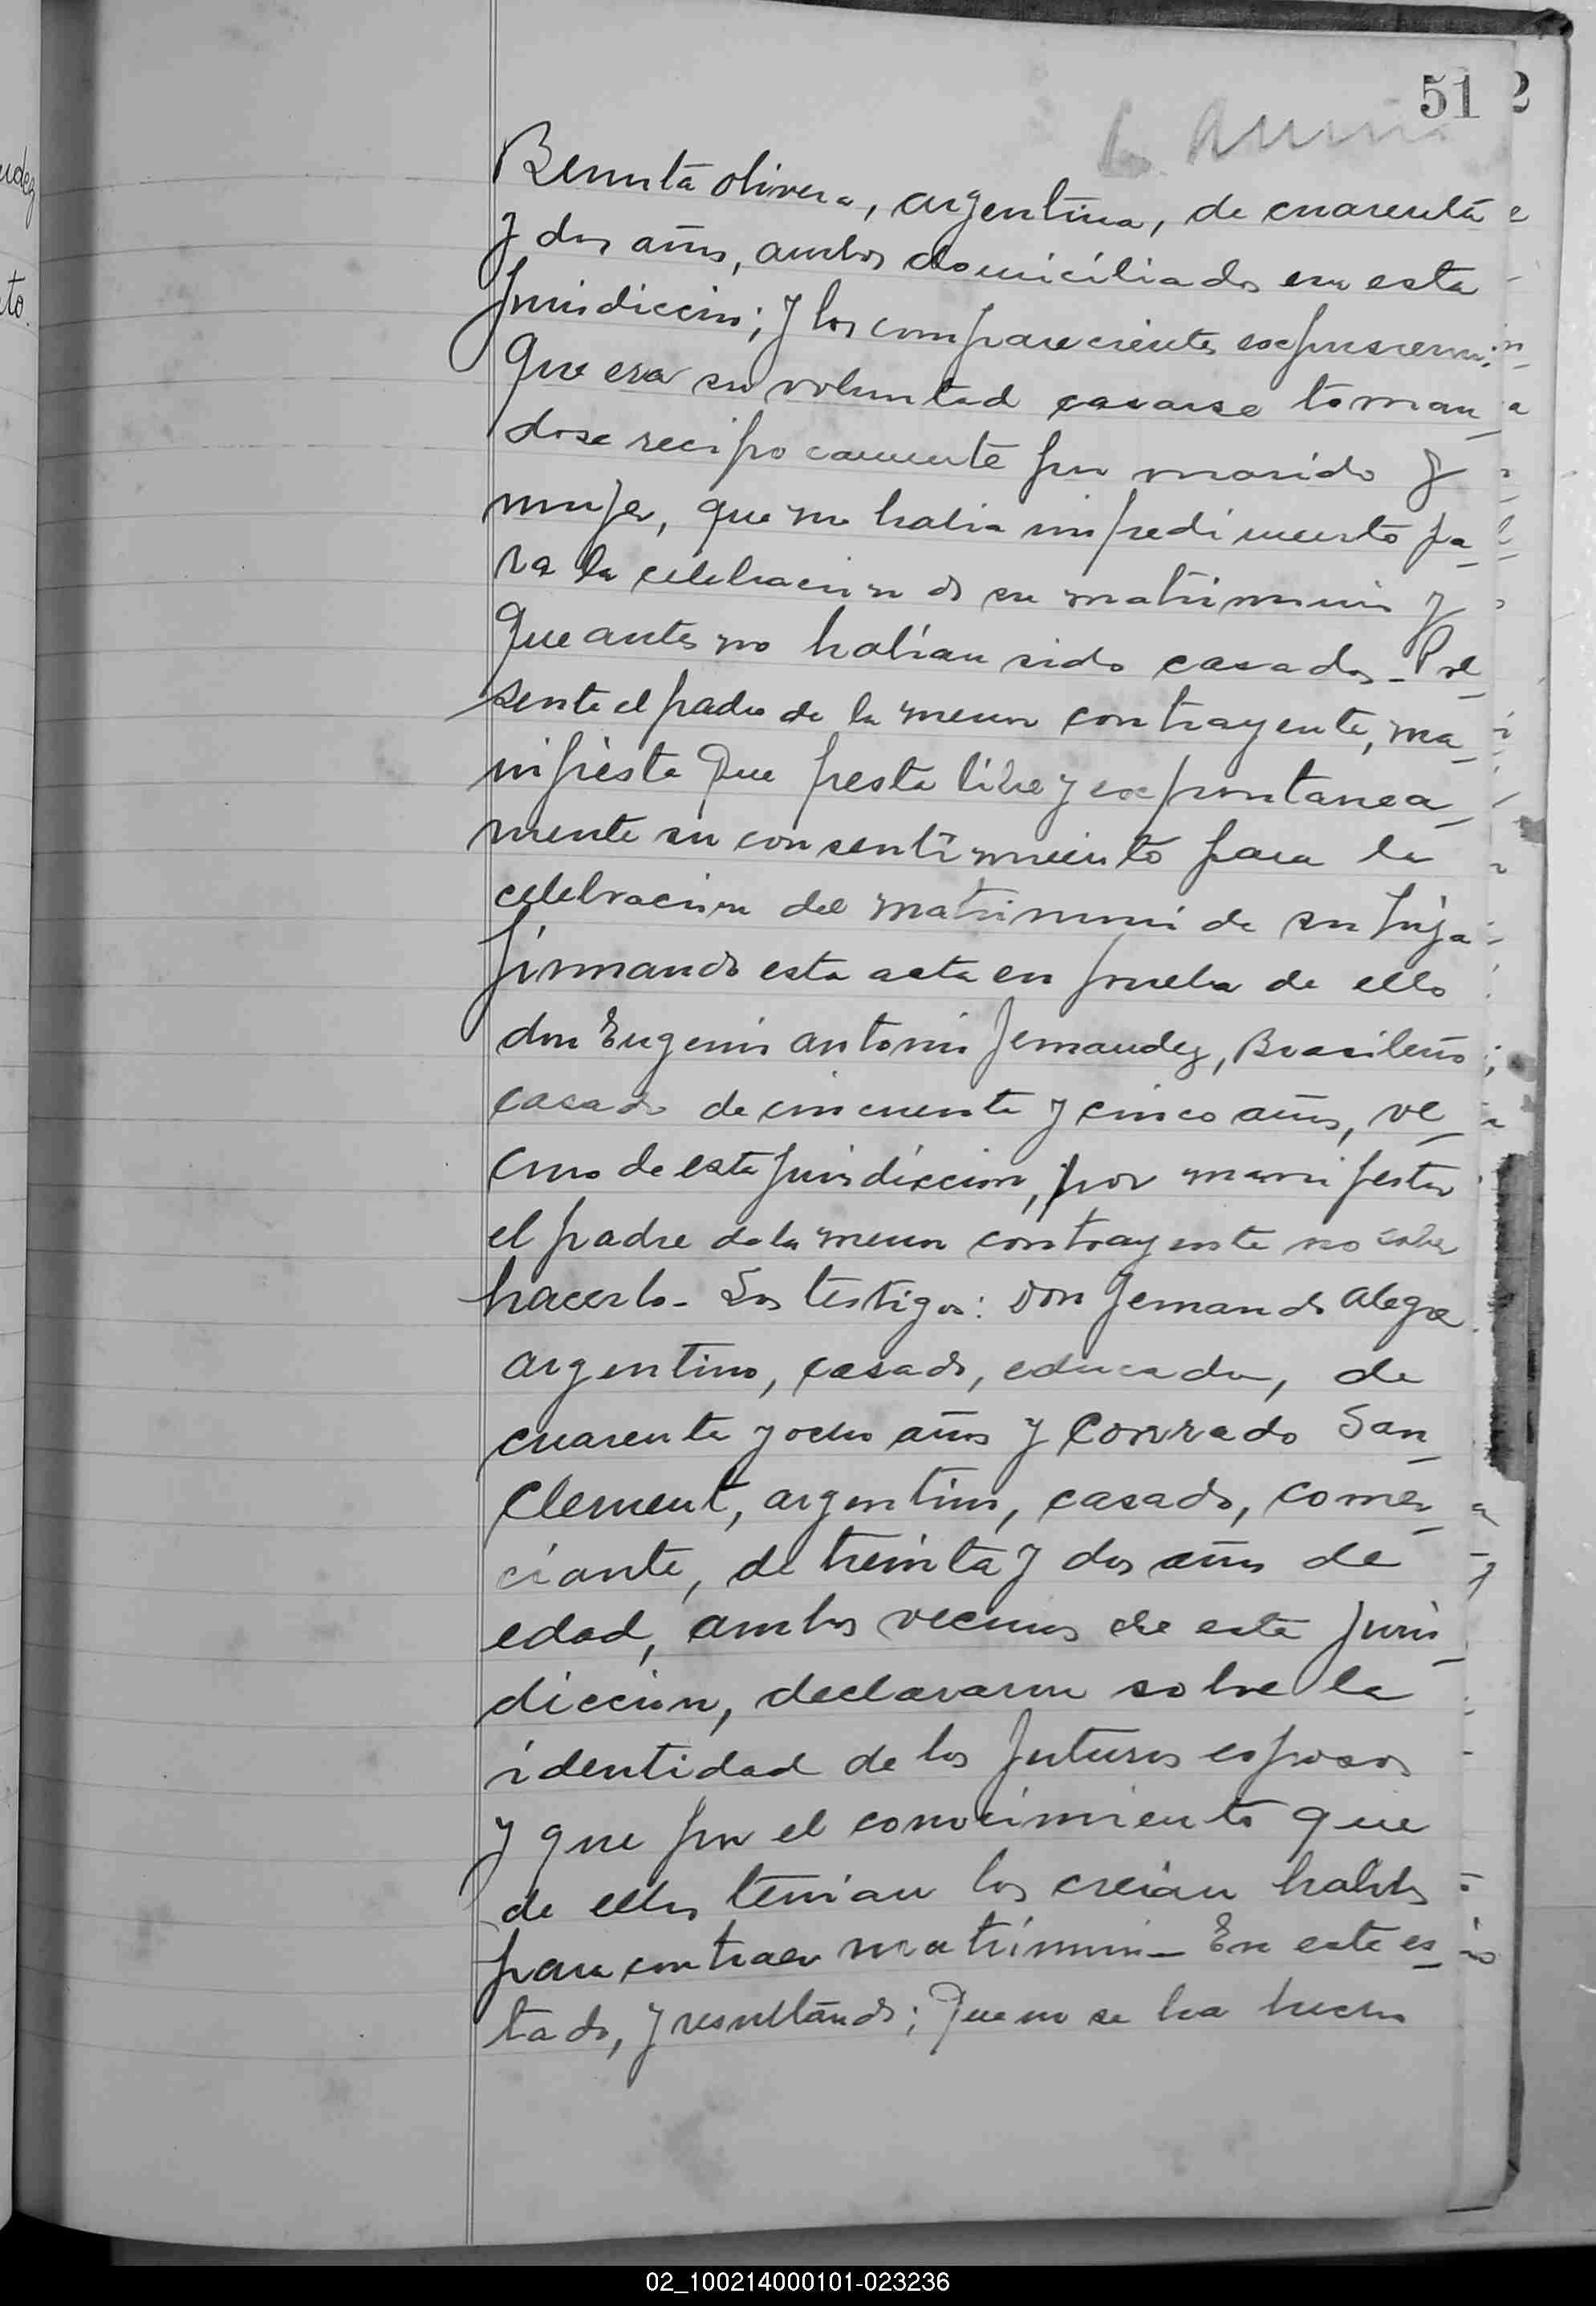 51 2
Benita Olivera, argentina, de cuarenta
y dos años, ambos domiciliados en esta
Jurisdiccion; y los comparecientes expusieron:
Que era su voluntad casarse toman_
dose reciprocamente por marido y
mujer, que no habia impedimento pa_
ra la celebracion de su matrimonio y
que antes no habian sido casados_ Pre_
sente el padre de la menor contrayente, ma_
nifiesta que presta libre y expontanea_
mente su consentimiento para la
celebracion del matrimonio de su hija
firmando esta acta en prueba de ello
don Eugenio Antonio Fernandez, Brasileño
casado de cincuenta y cinco años, ve_
cino de esta jurisdiccion, por manifestar
el padre de la menor contrayente no saber
hacerlo_ Los testigos: Don Fernando Alegre
argentino, casado, educador, de
cuarenta y ocho años y Conrado San_
Clement, argentino, casado, comer_
ciante, de treinta y dos años de
edad, ambos vecinos de esta juris_
diccion, declararon sobre la
identidad de los futuros esposos
y que por el conocimiento que
de ellos tenian los creian habiles
para contraer matrimonio_ En este es_
tado, y resultando; Que no se ha hecho
02_100214000101-023236